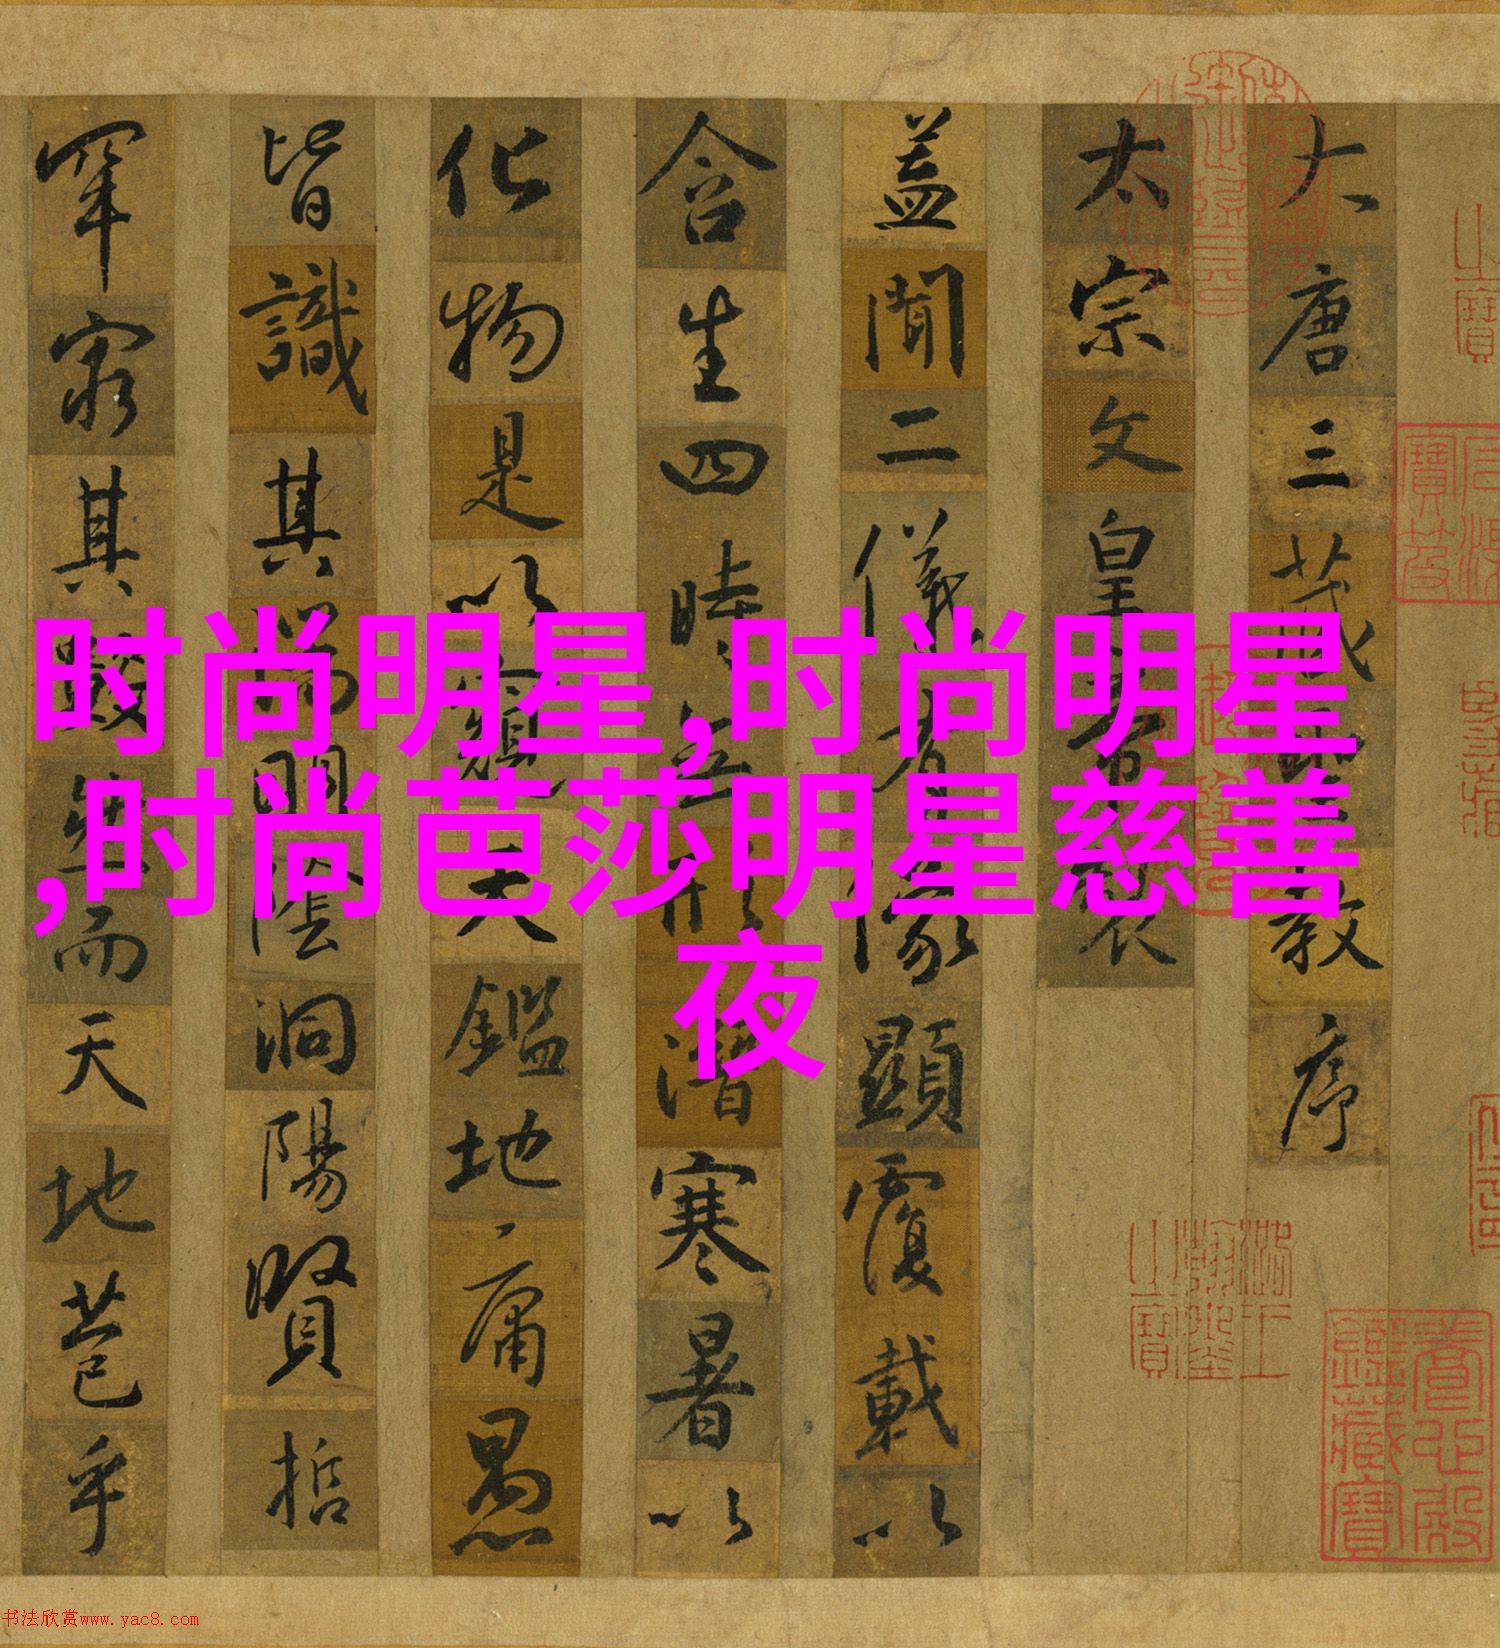 时尚明星,时尚明星
,时尚芭莎明星慈善
夜
大唐三藏聖教序
太宗文皇帝製
盖聞二儀有像顯覆載以
含生四時無形潛寒暑以
化物是以窺天鑑地庸愚
皆識其端明陰洞陽賢哲
罕窮其數然而天地苞乎
書法欣赏www.yac8.com